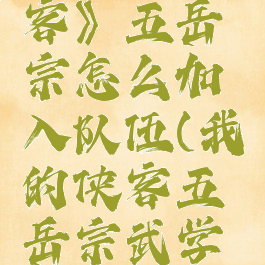 客》五岳
宗怎么加
入队伍(我
的侠客五
岳宗武学